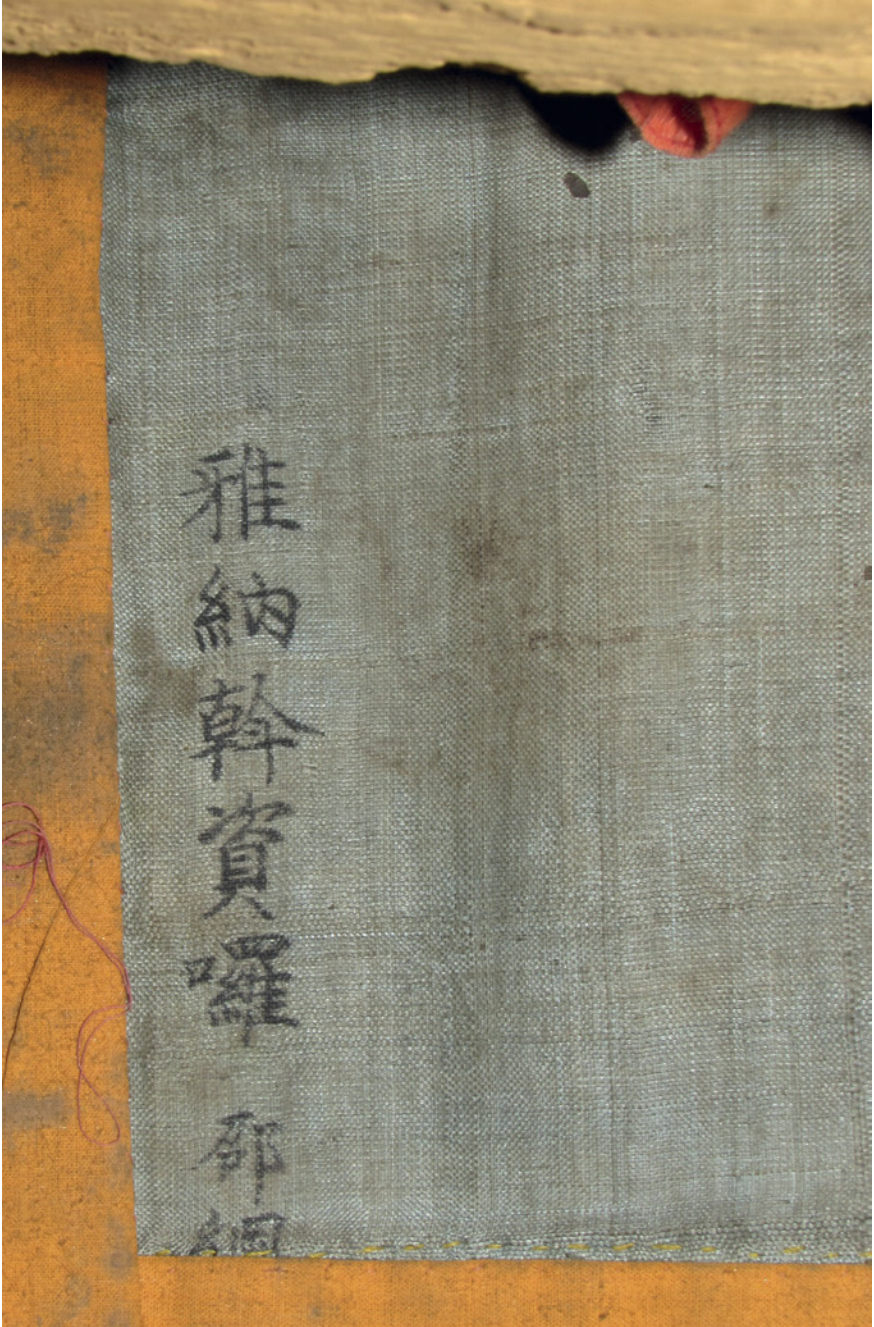 雅納斡資囉 邵綱